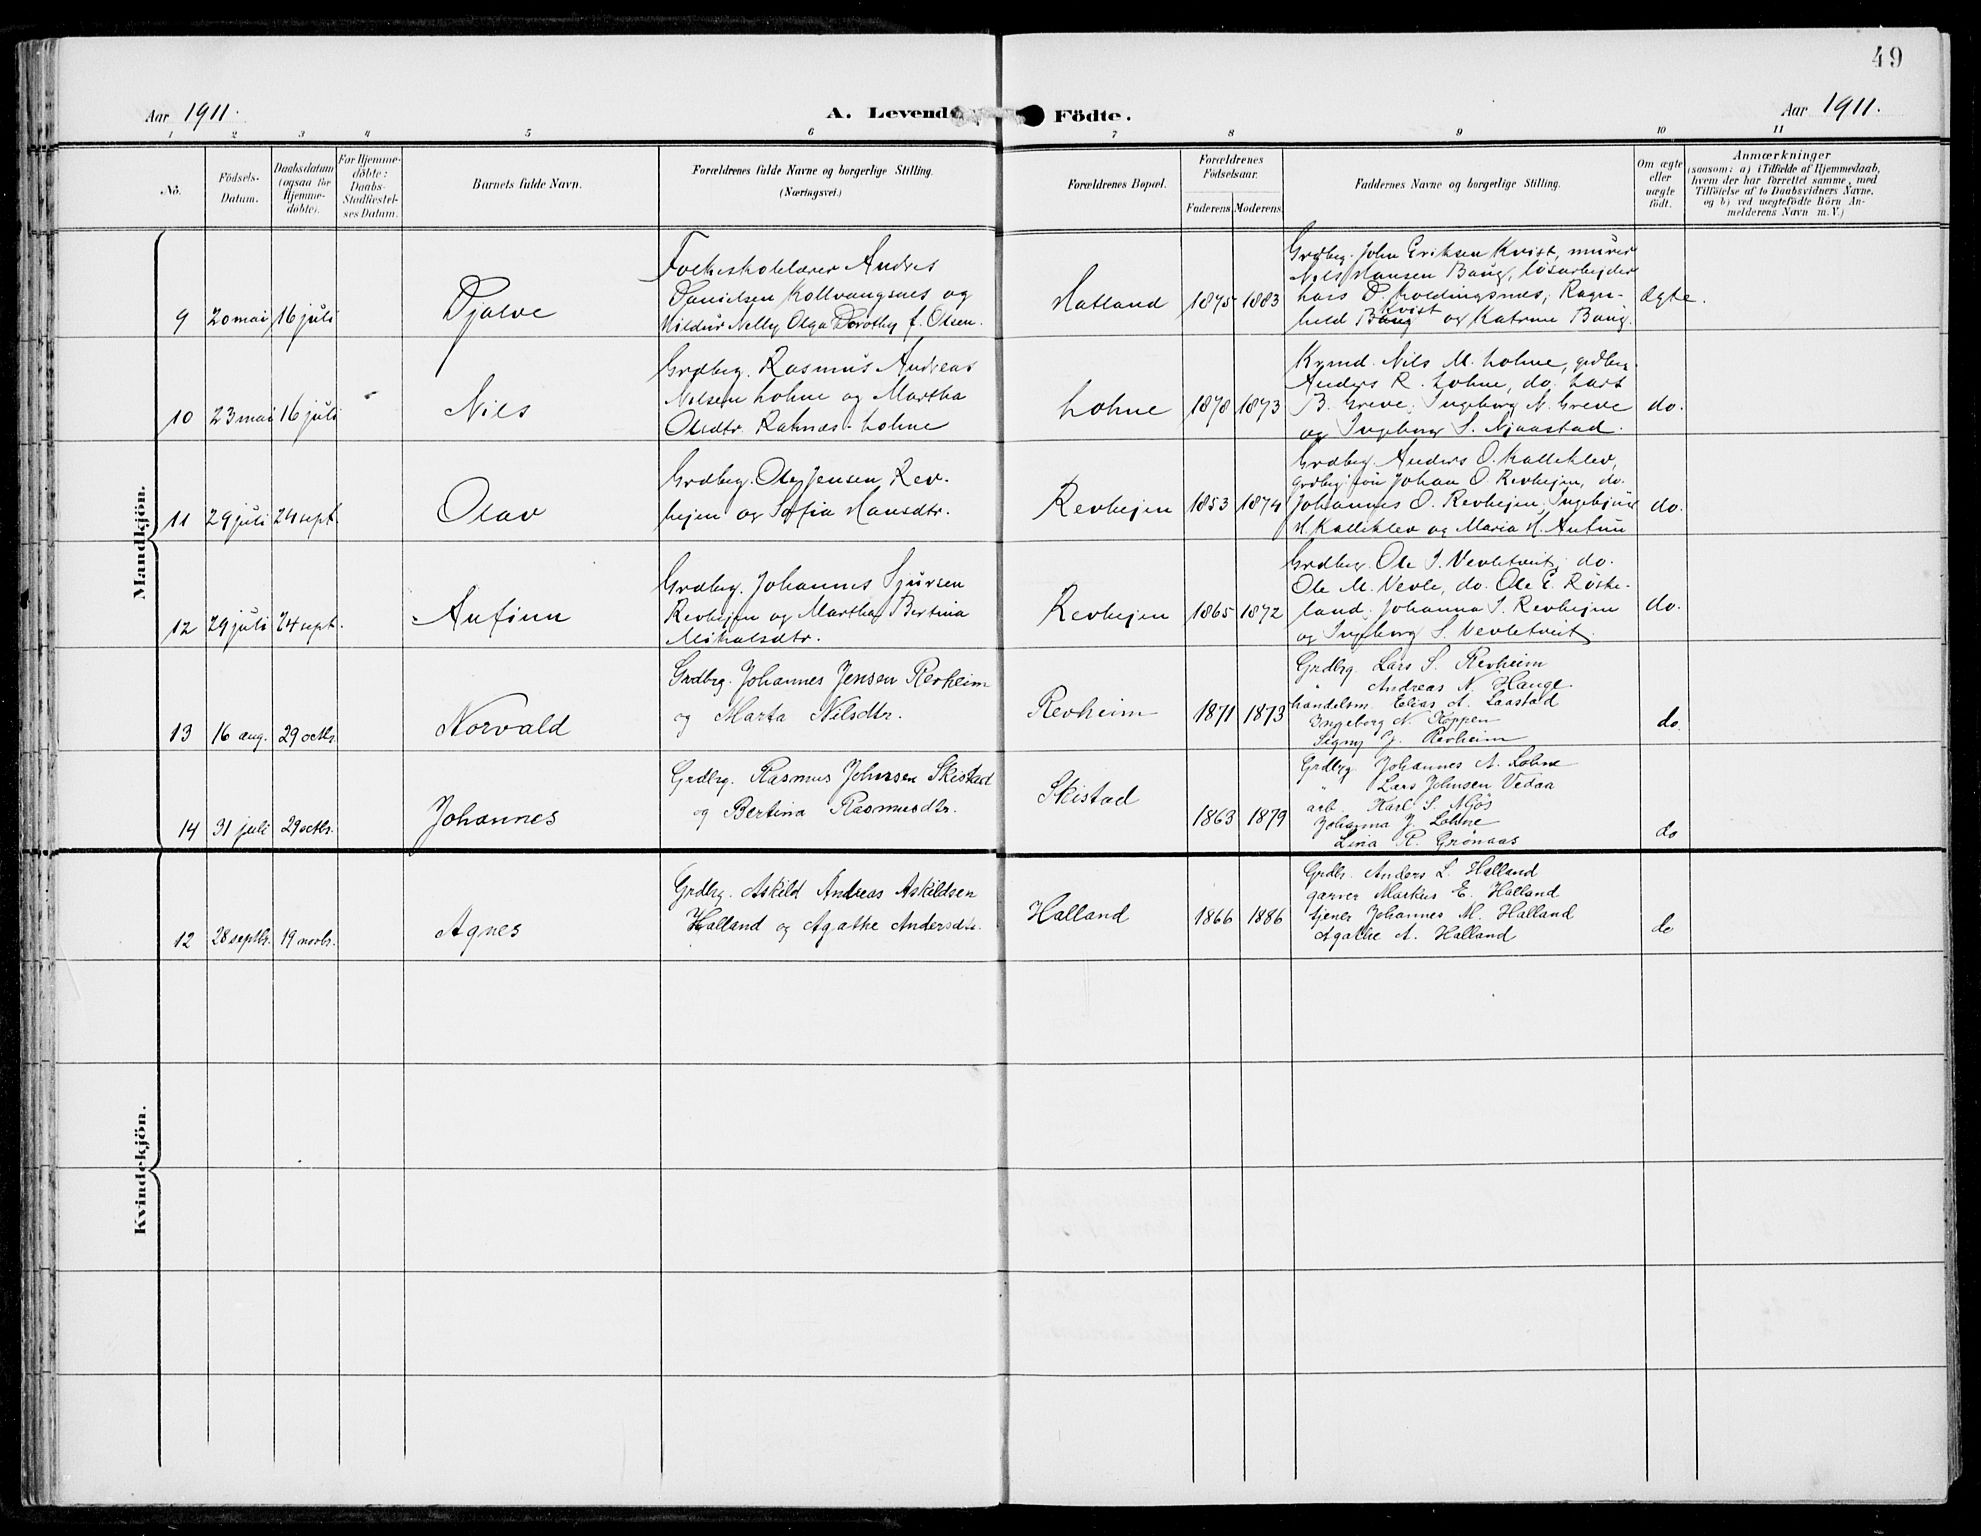 49
Aar 1911.
A. Levende
Födte.
Aar 1911.
1 2 3 4 5 6 7 8 9 10 11
No.
Födsels-
Datum.
Daabsdatum
(ogsaa for
Hjemme-
døbte).
For Hjemme-
döbte:
Daabs-
Stadfæstel-
ses Datum.
Barnets fulde Navn.
Forældrenes fulde Navne og borgerlige Stilling.
(Næringsvei.)
Forældrenes Bopæl.
Forældrenes
Födselsaar.
Faderens Moderens
Faddernes Navne og borgerlige Stilling.
Om ægte
eller
uægte
födt.
Anmærkninger
(saasom: a) i Tilfælde af Hjemmedaab,
hvem der har forrettet samme, med
Tilföielse af to Daabsvidners Navne,
og b) ved uægtefödte Börn An-
melderens Navn m. V.)
Mandkjön.
9 20 mai 16 juli
Folkeskolelærer Andres
Danielsen Kollvangsnes og
Hildur Nelly Olga Dorothy f. Olsen.
Hatland 1875 1883
Grdbrg. John Eriksen Kvist, murer
Nils Hansen Baug, løsarbejder
Lars D. Koldingsnes, Ragn-
hild Baug Kvist og Katrine Baug.
Ægte.
10 23 mai 16 juli
Nils
Grdbrg. Rasmus Andreas
Nilsen Lohne og Martha
Olsdtr. Raknes-Lohne
Lohne 1878 1873
Nils M. Lohne, grdbrg.
Anders R. Lohne, do. Lars
B. Greve, Ingeborg N. Greve
og Ingeborg S. Njaastad.
do.
11 29 juli 24 sept.
Olav
Grdbrg. Ole Jensen Rev-
hejen og Sofia Hansdtr.
Revhejen 1853 1874
Grdbrg. Anders O. Kalleklev,
Johan O. Revhejen, do.
Johannes O. Revhejen,
H. Kalleklev og Maria H.
do.
12 29 juli 24 sept.
Anfinn
Grdbrg. Johannes Sjursen
Revhejen og Martha Bertina
Mikalsdtr.
Revhejen 1865 1872
Grdbrg. Ole I. Vevletveit, do.
Ole M. Vevle, do. Ole E. Røste-
land, Johanna S. Revhejen
og Ingeborg S. Vevletveit.
do.
13 16 aug. 29 octbr.
Norvald
Grdbrg. Johannes Jensen Revheim
og Marta Nilsdtr.
Revheim 1871 1873
Grdbrg. Lars S. Revheim
" Andreas N. Hauge
handelsm. Elias A. Laastad
Ingeborg N. Koppen
Signy J. Revheim
do
14 31 juli 29 octbr.
Johannes
Grdbrg. Rasmus Johnsen Skistad
og Bertina Rasmusdtr.
Skistad 1863 1879
Grdbrg. Johannes A. Lohne
" Lars Johnsen Vedaa
arb. Karl S. Mjøs
Johanna J. Lohne
Lina R. Grønaas
do
Kvindekjön.
12 28 septbr. 19 novbr.
Agnes
Grdbrg. Askild Andreas Askildsen
Halland og Agathe Andersdtr.
Halland 1866 1886
Grdbr. Anders L. Halland
garver Markus E. Halland
tjener Johannes M. Halland
Agathe A. Halland
do